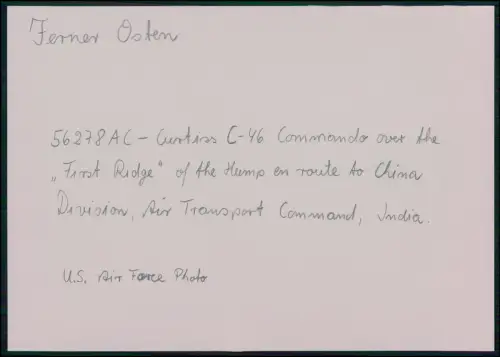 Ferner Osten
56278AC - Curtiss C-46 Commando over the
„First Ridge" of the Hump en-route to China
Division, Air Transport Command, India.
U.S. Air Force Photo